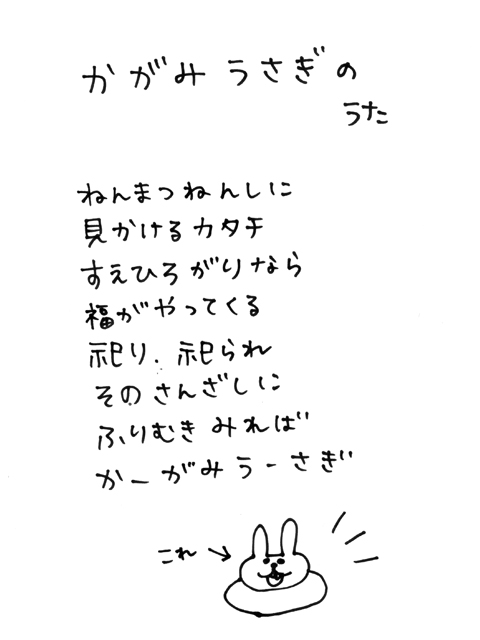 かがみうさぎの
うた
ねんまつねんしに
見かけるカタチ
すえひろがりなら
福がやってくる
祀り、祀られ
そのさんざしに
ふりむきみれば
かーがみうーさぎ
これ→